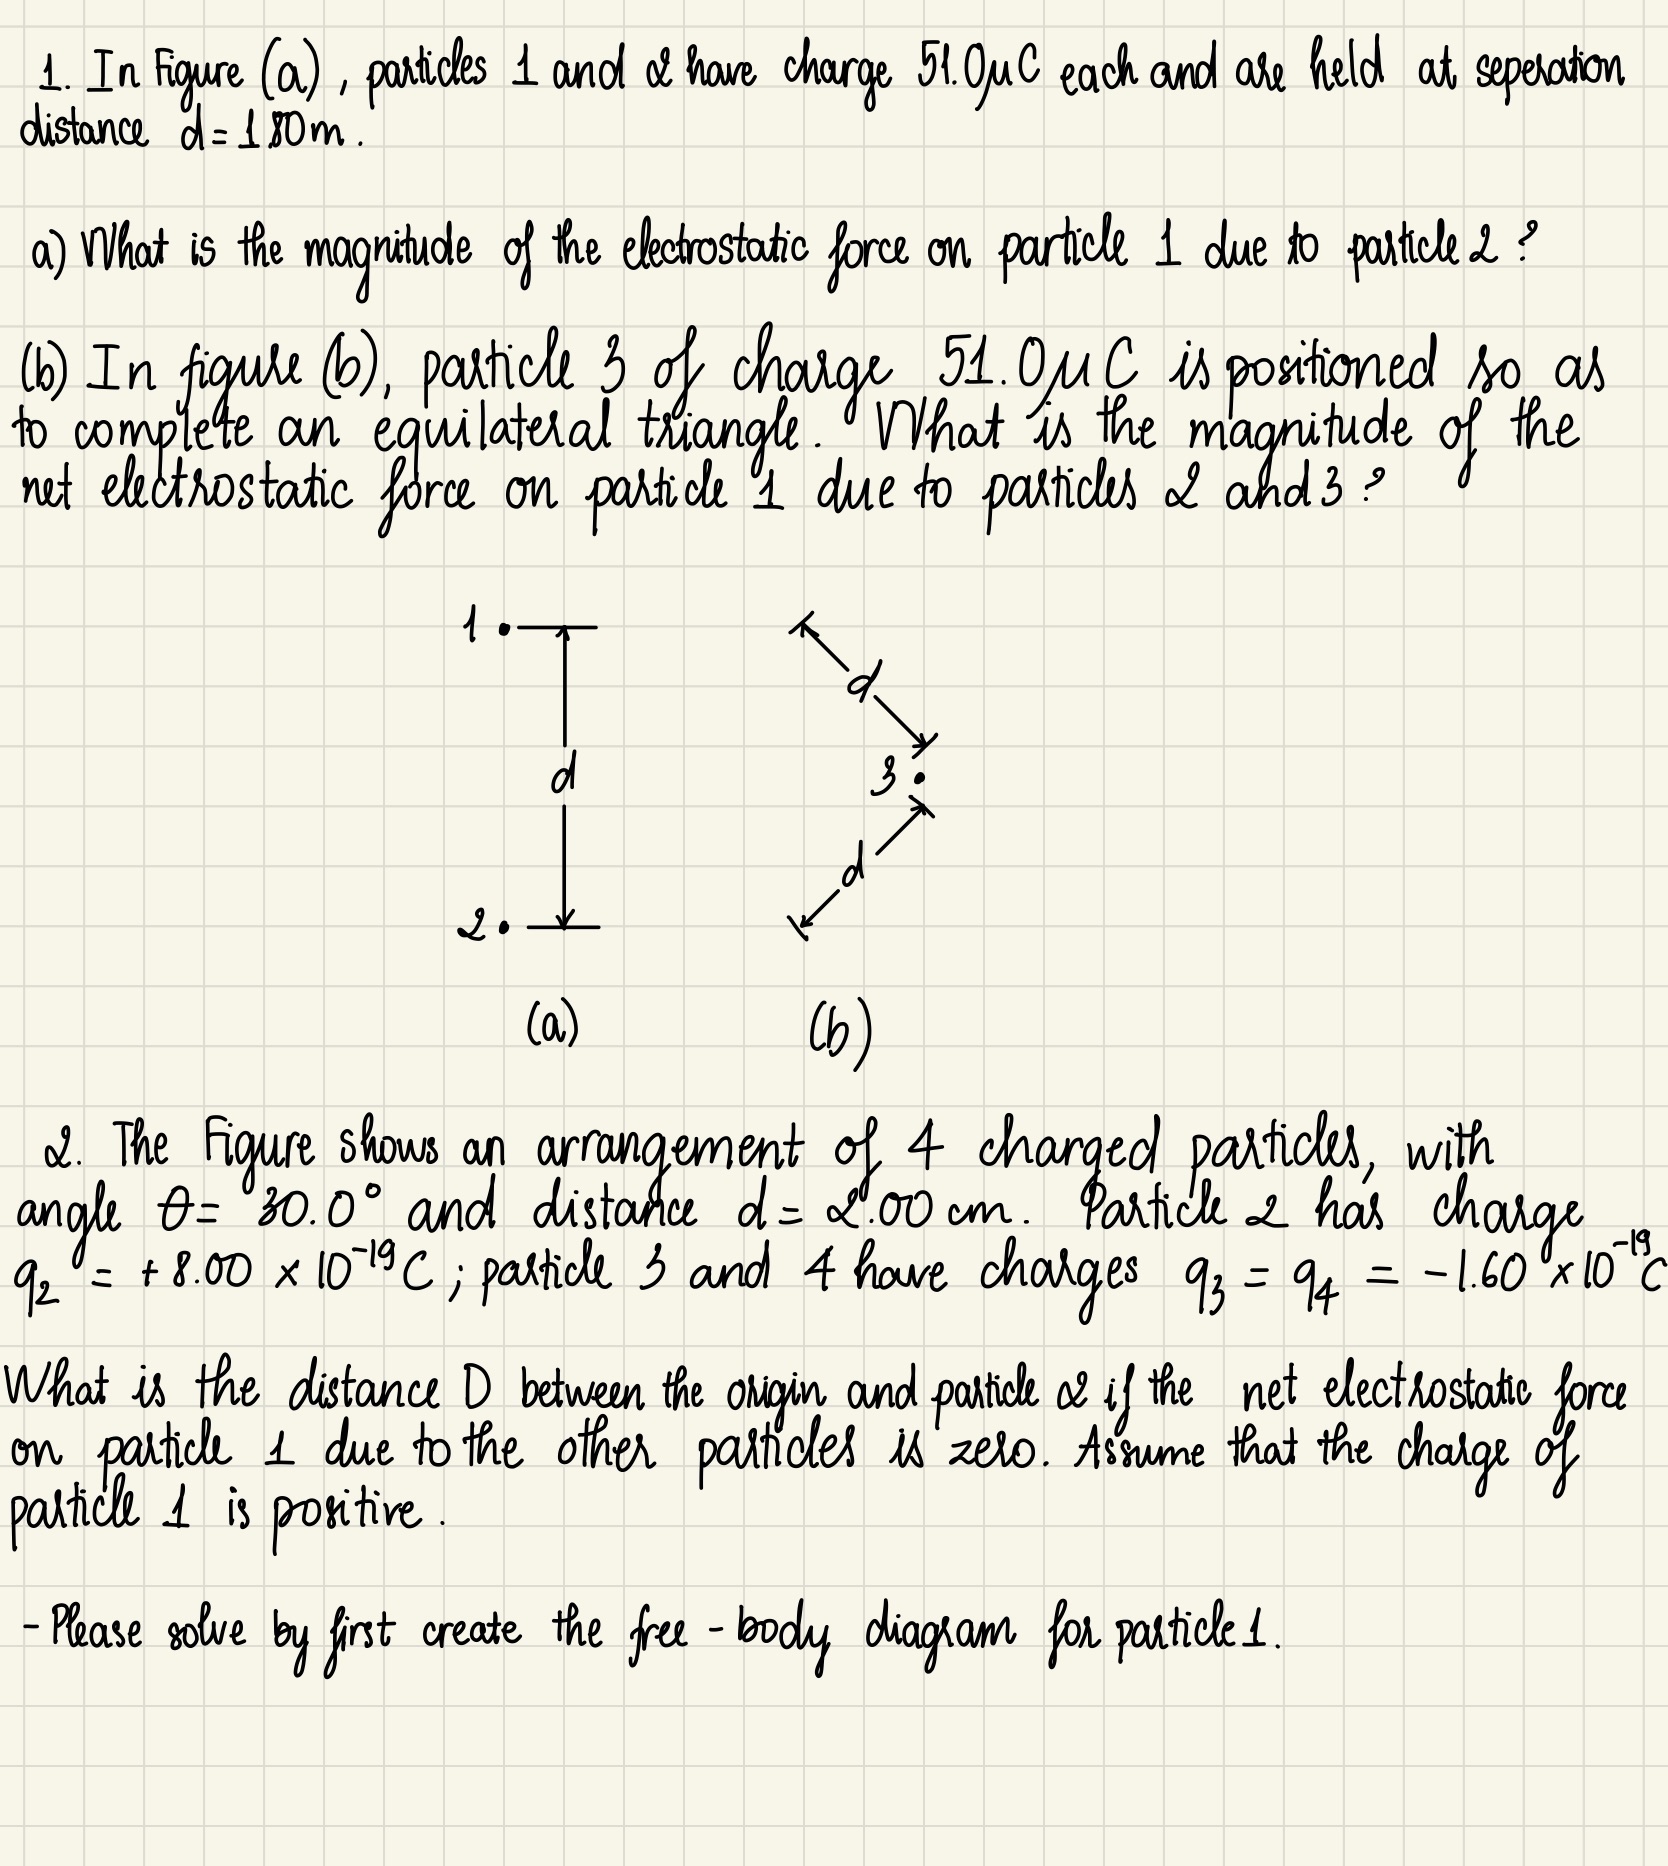 1. In Figure (a), particles 1 and 2 have charge 51.0μC each and are held at seperation
distance d = 1.80m.
a) What is the magnitude of the electrostatic force on particle 1 due to particle 2?
(b) In figure (b), particle 3 of charge 51.0μC is positioned so as
to complete an equilateral triangle. What is the magnitude of the
net electrostatic force on particle 1 due to particles 2 and 3?
1
d
d
3
d
2
(a) (b)
2. The Figure shows an arrangement of 4 charged particles, with
angle θ = 30.0° and distance d = 2.00 cm. Particle 2 has charge
q₂ = +8.00 × 10⁻¹⁹ C; particle 3 and 4 have charges q₃ = q₄ = -1.60 × 10⁻¹⁹ C
What is the distance D between the origin and particle 2 if the net electrostatic force
on particle 1 due to the other particles is zero. Assume that the charge of
particle 1 is positive.
- Please solve by first create the free-body diagram for particle 1.